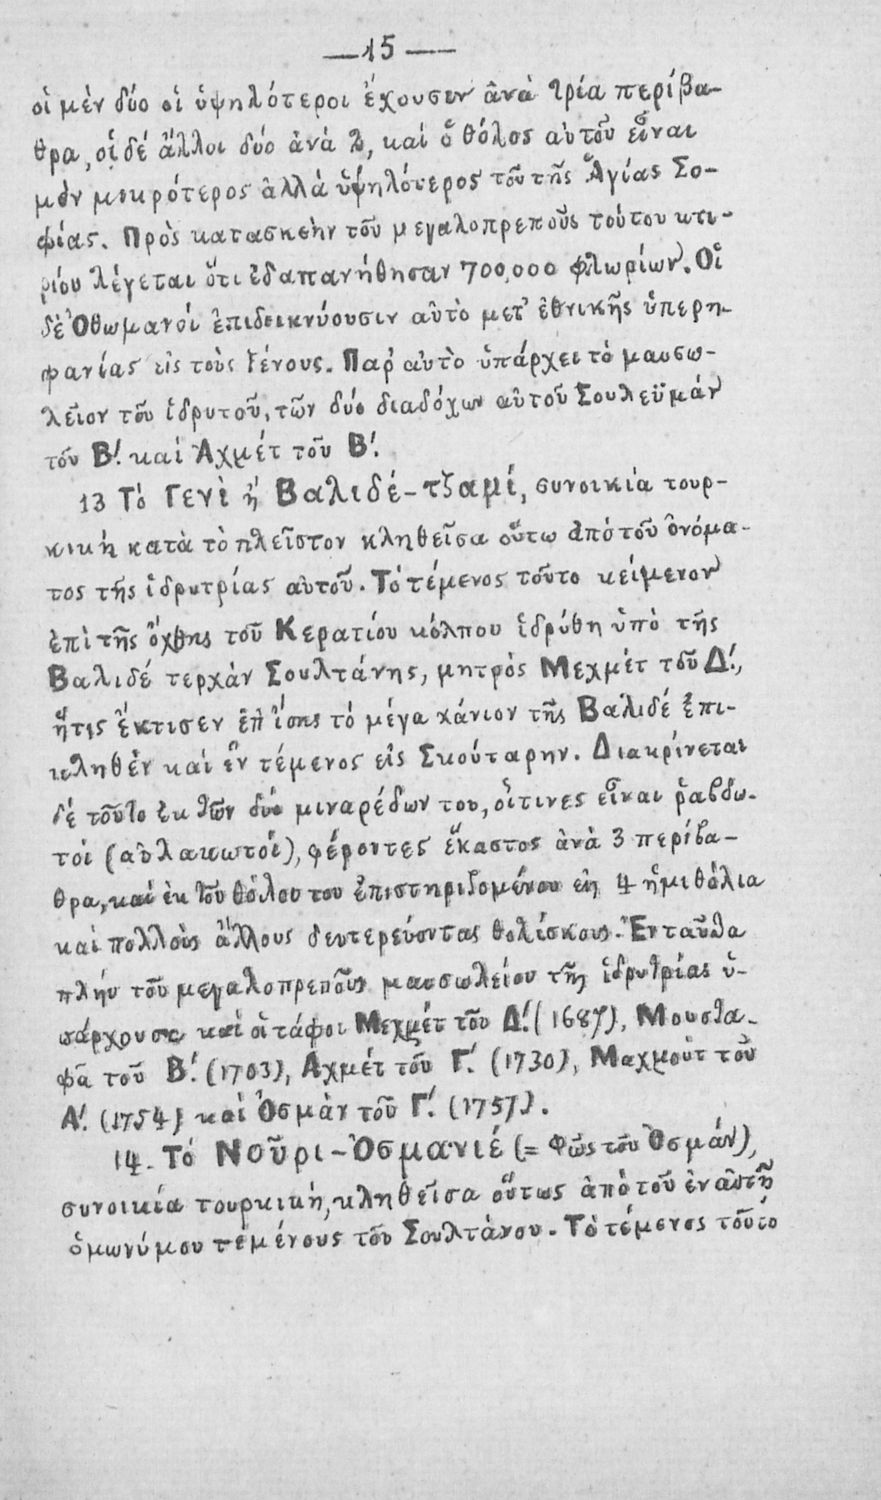 — 15 —
οἱ μὲν δύο οἱ ὑψηλότεροι ἔχουσιν ἀνὰ τρία περίβα-
θρα, οἱ δέ ἄλλοι δύο ἀνὰ 2, καὶ ὁ θόλος αὐτοῦ εἶναι
μὲν μικρότερος ἀλλὰ ὑψηλότερος τοῦ τῆς Ἁγίας Σο-
φίας. Πρὸς κατασκευὴν τοῦ μεγαλοπρεποῦς τούτου κτι-
ρίου λέγεται ὅτι ἐδαπανήθησαν 700,000 φλωρίων. Οἱ
δὲ Ὀθωμανοὶ ἐπιδεικνύουσιν αὐτὸ μετ' ἐθνικῆς ὑπερη-
φανίας εἰς τοὺς ξένους. Παρ' αὐτὸ ὑπάρχει τὸ μαυσω-
λεῖον τοῦ ἱδρυτοῦ, τῶν δύο διαδόχων αὐτοῦ Σουλεϋμὰν
τοῦ Β'. καὶ Ἀχμέτ τοῦ Β'.
13 Τὸ Γενὶ ἢ Βαλιδέ-τζαμί, συνοικία τουρ-
κικὴ κατὰ τὸ πλεῖστον κληθεῖσα οὕτω ἀπὸ τοῦ ὀνόμα-
τος τῆς ἱδρυτρίας αὐτοῦ. Τὸ τέμενος τοῦτο κείμενον
ἐπὶ τῆς ὄχθης τοῦ Κερατίου κόλπου ἱδρύθη ὑπὸ τῆς
Βαλιδέ τερχὰν Σουλτάνης, μητρὸς Μεχμέτ τοῦ Δ'.,
ἥτις ἔκτισεν ἐπ' ἴσης τὸ μέγα χάνιον τῆς Βαλιδέ ἐπι-
κληθὲν καὶ ἓν τέμενος εἰς Σκούταρην. Διακρίνεται
δέ τοῦτο ἐκ τῶν δύο μιναρέδων του, οἵτινες εἶναι ῥαβδω-
τοὶ (αὐλακωτοί), φέροντες ἕκαστος ἀνὰ 3 περίβα-
θρα, καὶ ἐκ τοῦ θόλου του ἐπιστηριζομένου εἰς 4 ἡμιθόλια
καὶ πολλοὺς ἄλλους δευτερεύοντας θολίσκους. Ἐνταῦθα
πλὴν τοῦ μεγαλοπρεποῦς μαυσωλείου τῆς ἱδρυτρίας ὑ-
πάρχουσι καὶ οἱ τάφοι Μεχμέτ τοῦ Δ'. (1687), Μουστα-
φᾶ τοῦ Β'. (1703), Ἀχμέτ τοῦ Γ'. (1730), Μαχμοὺτ τοῦ
Α'. (1754) καὶ Ὀσμὰν τοῦ Γ'. (1757).
14. Τὸ Νοῦρι-Ὀσμανιέ (= Φῶς τοῦ Ὀσμάν),
συνοικία τουρκική, κληθεῖσα οὕτως ἀπὸ τοῦ ἐν αὐτῇ
ὁμωνύμου τεμένους τοῦ Σουλτάνου. Τὸ τέμενος τοῦτο